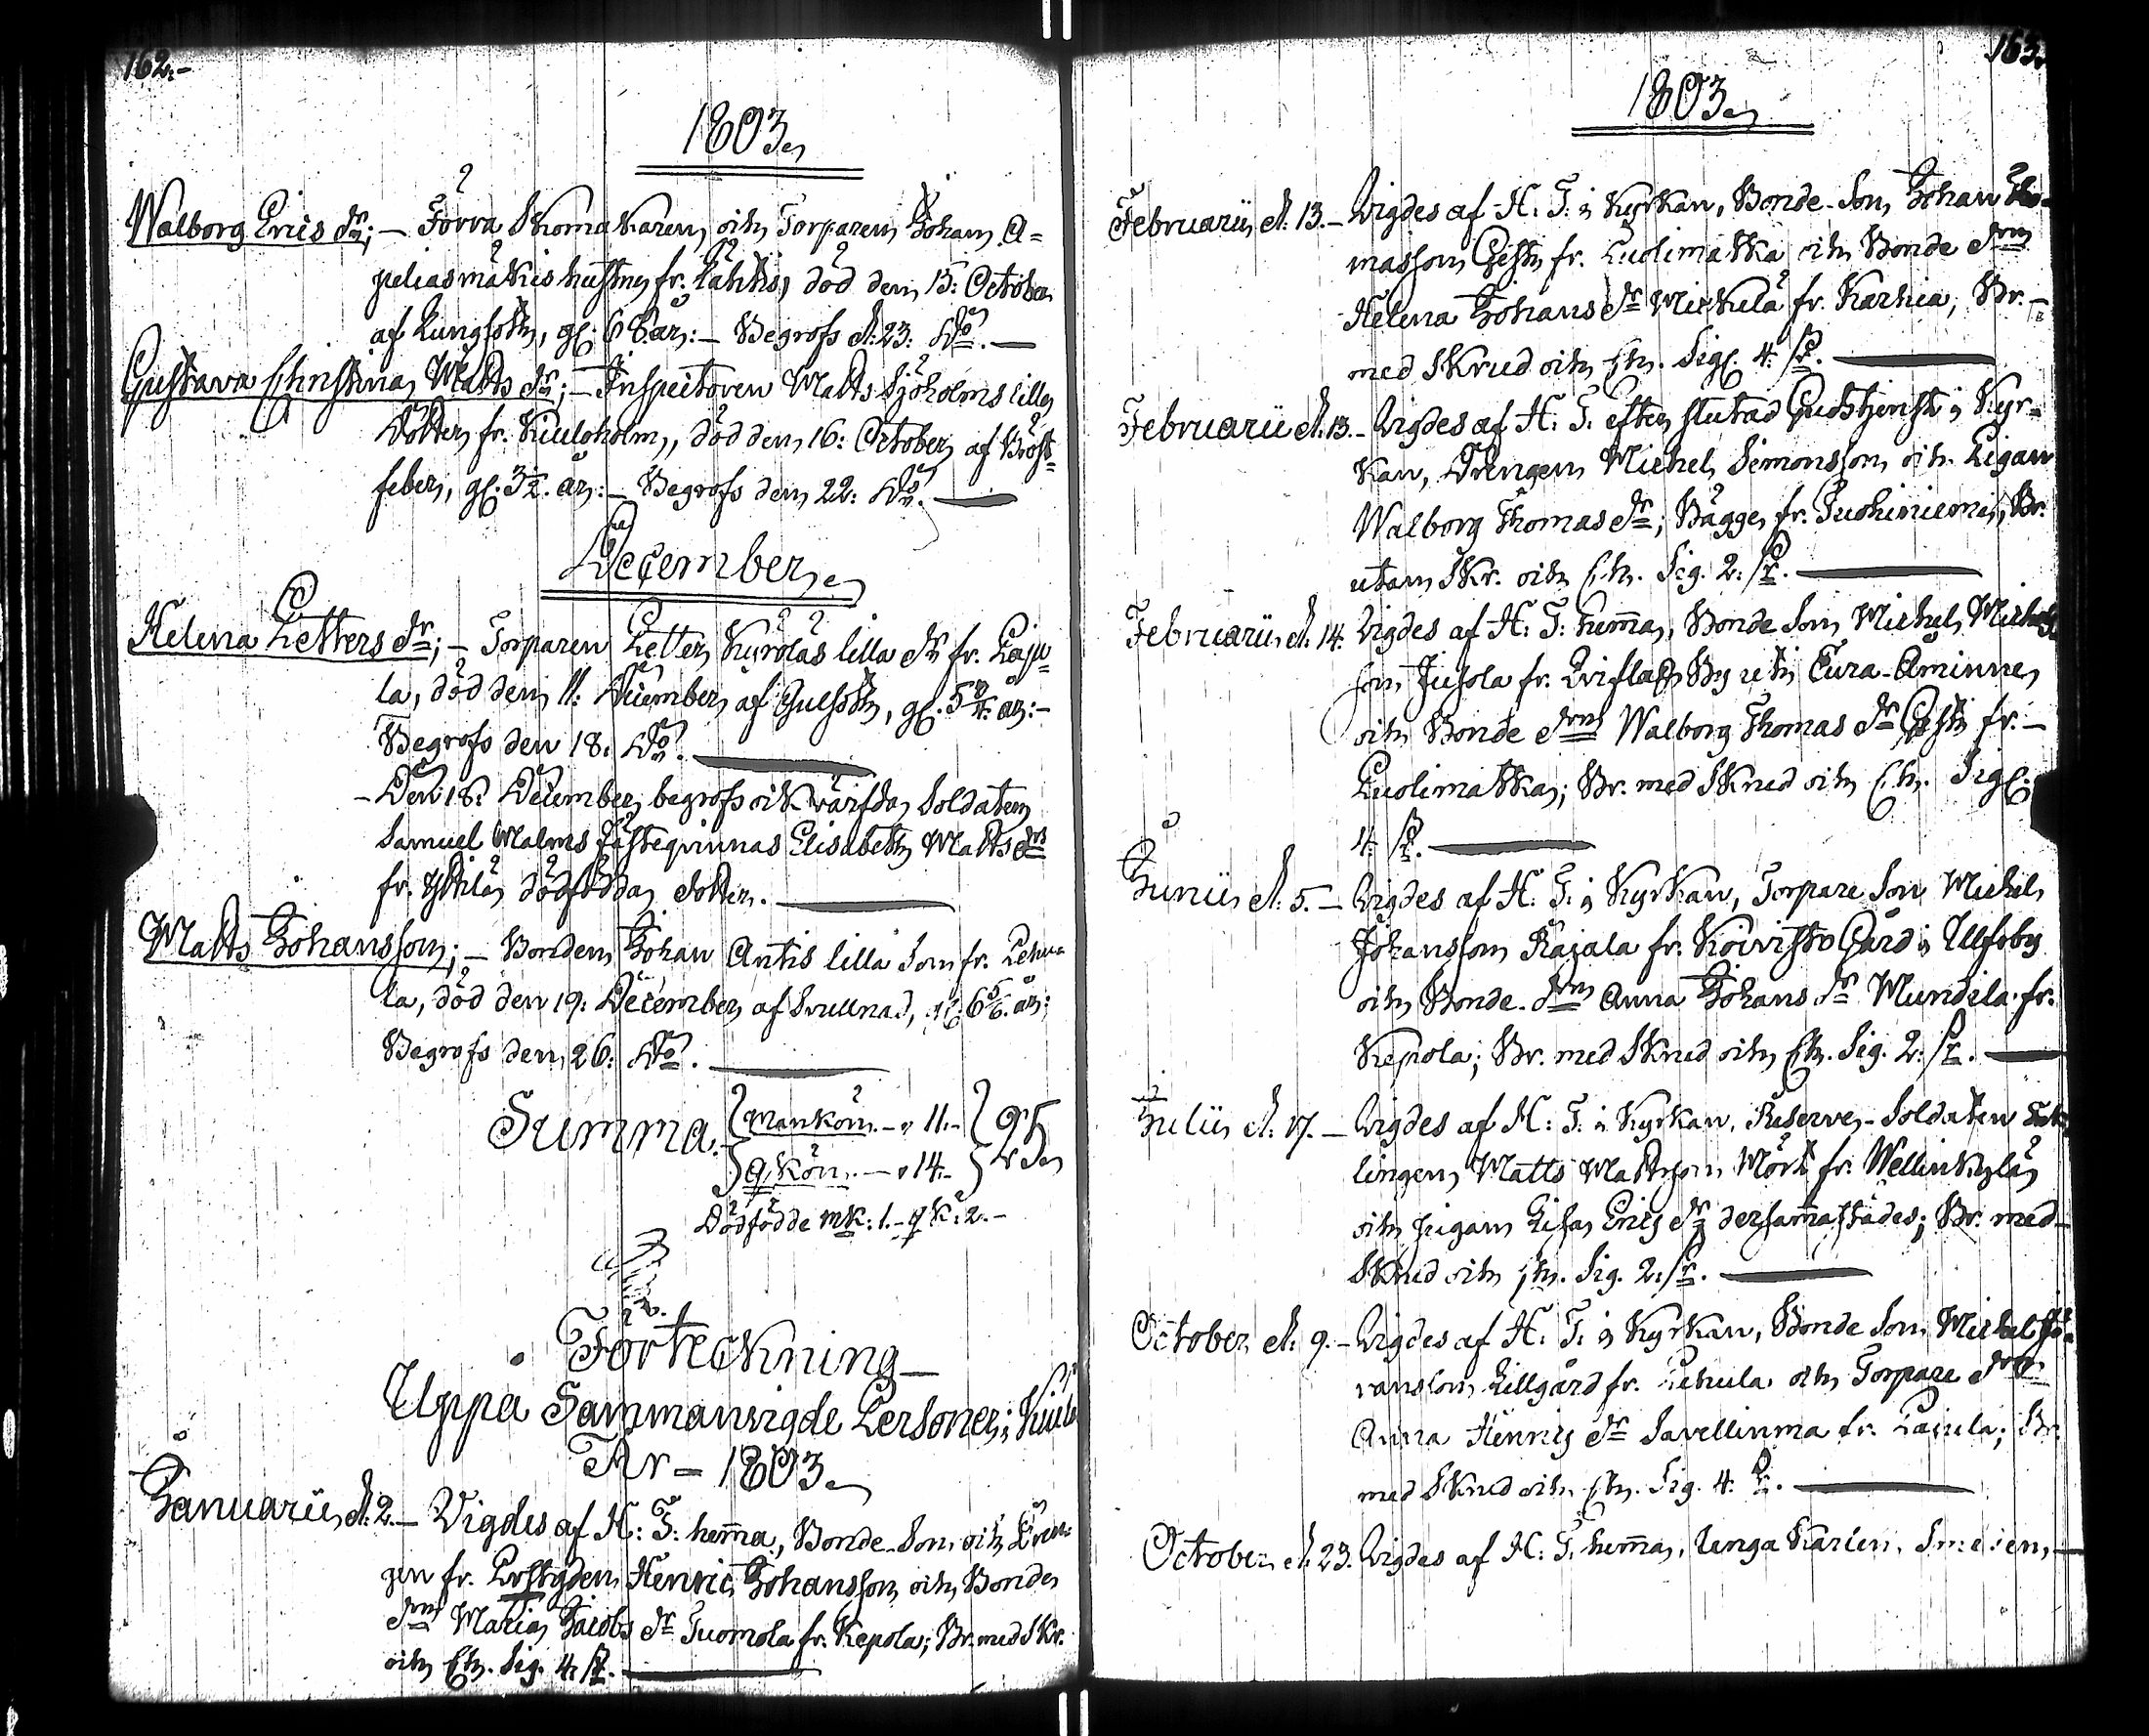 162.
1803.
Walborg Erics dr; — Förra Skomakaren och Torparen Johan A=
peliasmäkis hustru fr. Lähtis, död den 15: October
af Lungsoth, gl. 68 år: — Begrofs d. 23. do. —
Gustava Christina Matts dr; — Inspectoren Matts Sjöholms lilla
Dotter fr. Kiuloholm, död den 16: October af Bröst=
feber, gl. 3½ år: — Begrofs den 22: do. —
December.
Helena Petters dr; — Torparen Petter Kyröläs lilla dr fr. Paju=
la, död den 11: December af Gulsoth, gl. 5¾ år: —
Begrofs den 18: do. —
— Den 18: December begrofs ock värfda Soldaten
Samuel Malms Fästeqvinnas Elisabeth Matts drs
fr. dödfödda dotter. —
Matts Johansson; — Bonden Johan Antis lilla Son fr. Lehu=
la, död den 19: December af Svullnad, gl. 6⅚ år;
Begrofs den 26: do. —
Summa. mankön. — 11. —
qkön. — 14. — 25
Dödfödde mk: 1. — qk: 2. —
Förteckning
Uppå Sammanvigde Personer i Kiulo
År — 1803.
Januarii d. 2. — Vigdes af H: T: hemma, Bonde-Son och Drän=
gen fr. Henric Johansson och Bonde
drn Maria Jacobs dr Tuomola fr. Kepola; Br. med Skr.
och Ch. Sig. 4. —
163.
1803.
Februarii d. 13. — Vigdes af H: T: i Kyrkan, Bonde-Son Johan Tho=
masson Gest fr. Luolimatka och Bonde drn
Helena Johans dr Mickula fr. Karhia, Br. —
med Skrud och Ch. Sigl. 4. —
Februarii d. 13. — Vigdes af H: T: efter slutad Gudstjenst i Kyr=
kan, Drengen Michel Simonsson och Pigan
Walborg Thomas dr, Bägge fr. Juohiniemi, Br.
utan Skr. och Ch. Sig. 2. —
Februarii d. 14. Vigdes af H: T: hemma, Bonde Son Michel Michels
son Jusola fr. By uti Eura-Aminne
och Bonde drn Walborg Thomas dr Gest fr. —
Luolimatka; Br. med Skrud och Ch. Sigl.
4. —
Junii d. 5. — Vigdes af H: T: i Kyrkan, Torpare Son Michel
Johansson Rajala fr. Koivisto Gård i Ulfsby
och Bonde-drn Anna Johans dr Mundila fr.
Kepola; Br. med Skrud och Ch. Sig. 2. —
Julii d. 17. — Vigdes af H: T: i Kyrkan, Reserve-Soldaten
lingen Matts Mattsson Mört fr. Wellinkylä
och pigan Lisa Erics dr dersammastädes; Br. med
Skrud och Ch. Sig. 2. —
October d. 9. — Vigdes af H: T: i Kyrkan, Bonde Son Michel Gö=
ransson Lillgård fr. Lehula och Torpare drn
Anna Henrics dr Savellinma fr. Pajula; Br.
med Skrud och Ch. Sig. 4. —
October d. 23. Vigdes af H: T: hemma, unga Karlen, Smeden —